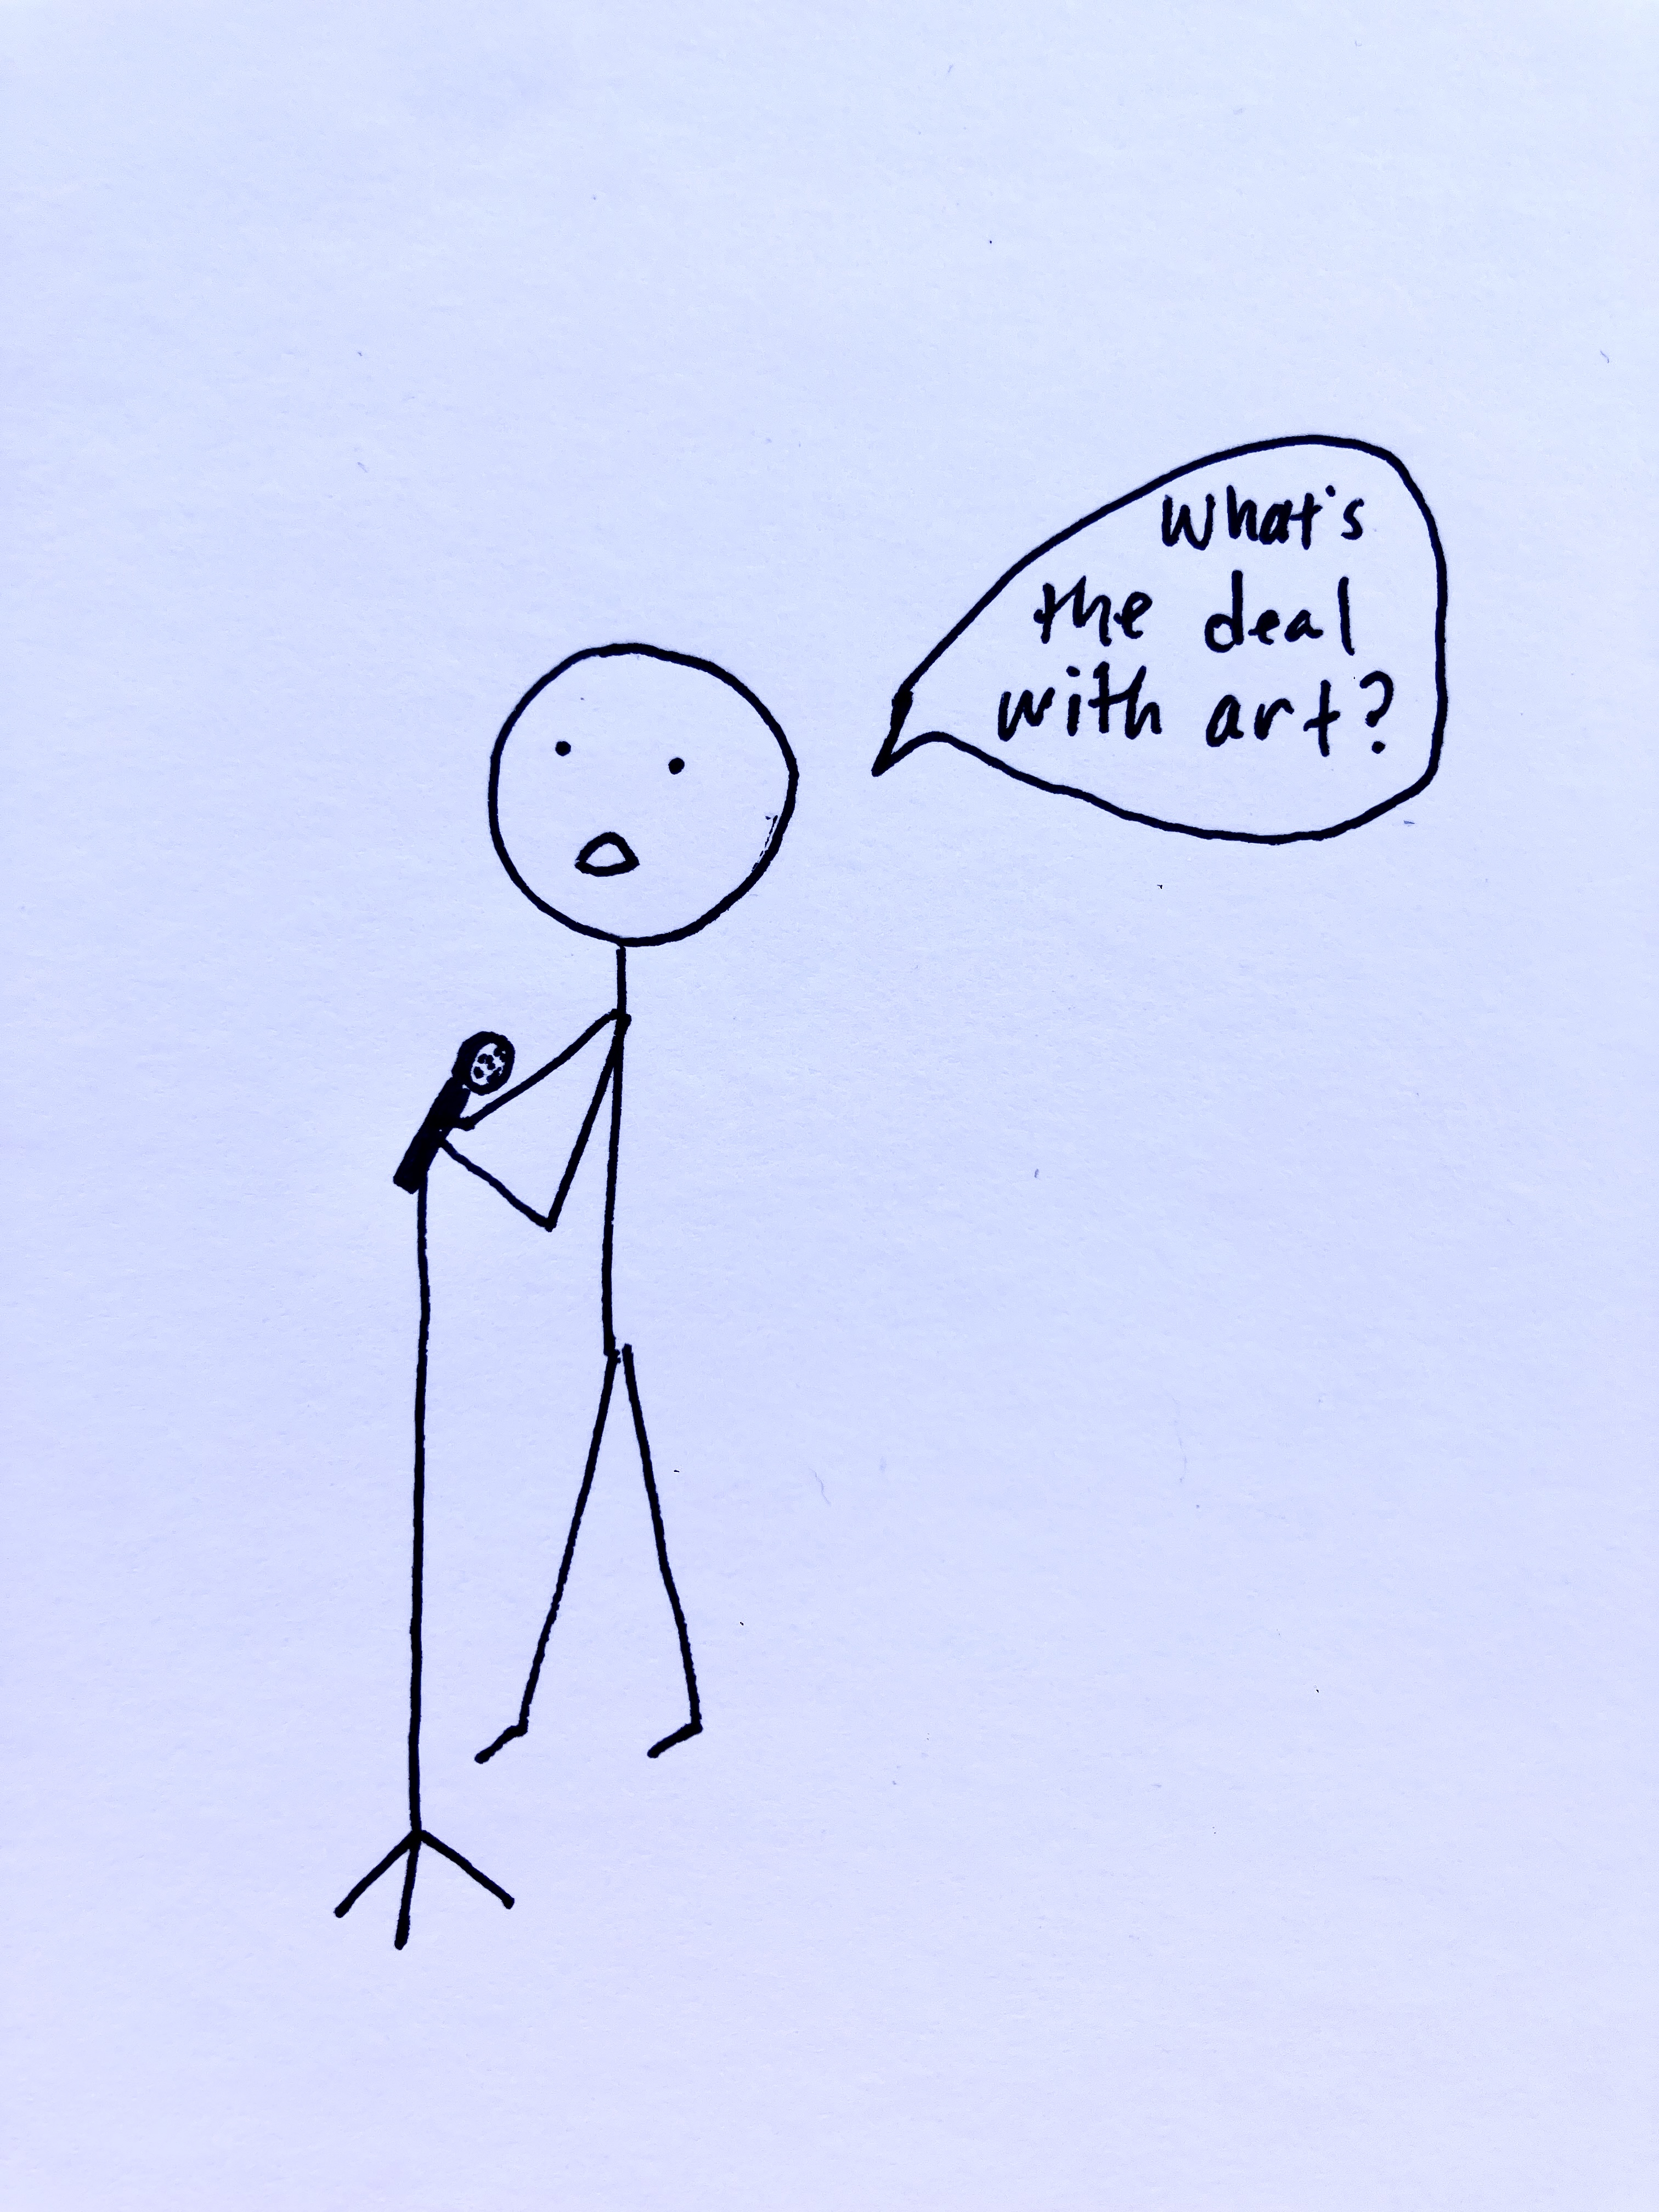 What's
the deal
with art?